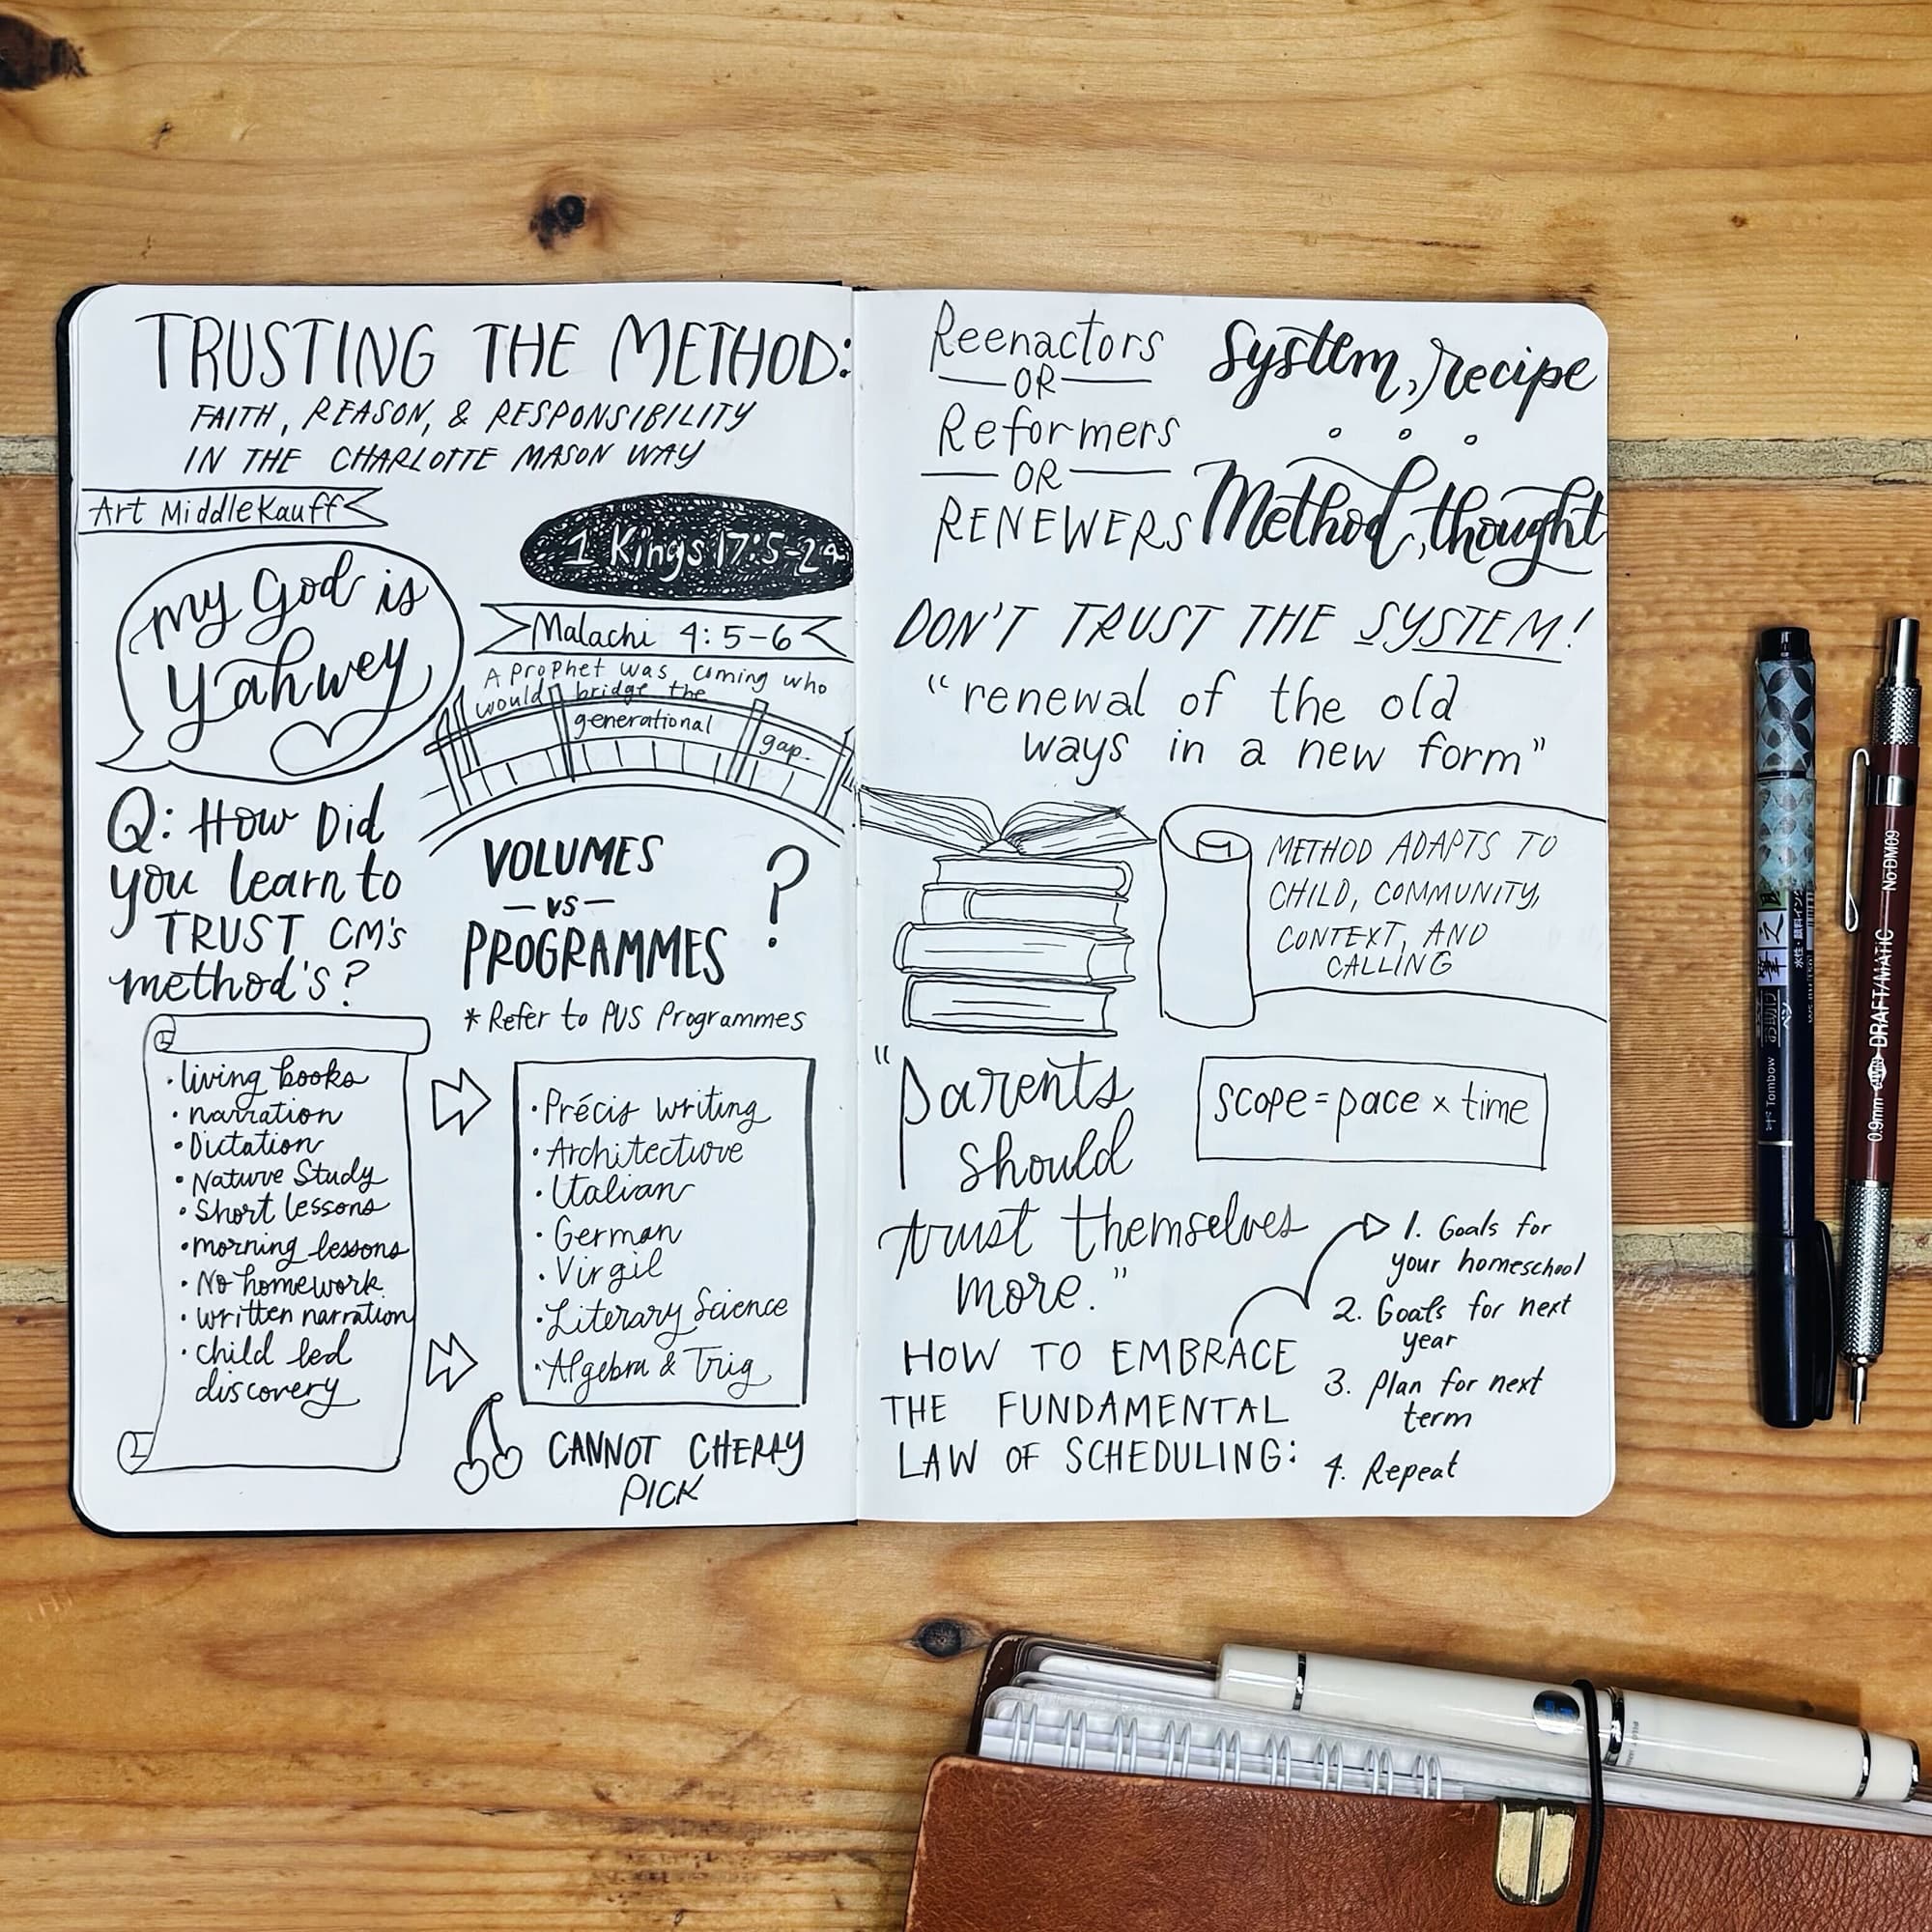 TRUSTING THE METHOD:
FAITH, REASON, & RESPONSIBILITY
IN THE CHARLOTTE MASON WAY
Art Middlekauff
1 Kings 17:5-24
my God is
Yahwey
Malachi 4:5-6
A prophet was coming who
would bridge the
generational
gap.
Q: How Did
you learn to
TRUST CM's
method's?
• living books
• narration
• Dictation
• Nature Study
• Short lessons
• morning lessons
• No homework
• written narration
• child led
discovery
VOLUMES
— vs —
PROGRAMMES
?
* Refer to PUS Programmes
• Précis writing
• Architecture
• Italian
• German
• Virgil
• Literary Science
• Algebra & Trig
CANNOT CHERRY
PICK
Reenactors
— OR —
Reformers
— OR —
RENEWERS
System, recipe
Method, thought
DON'T TRUST THE SYSTEM!
"renewal of the old
ways in a new form"
METHOD ADAPTS TO
CHILD, COMMUNITY,
CONTEXT, AND
CALLING
"Parents
should
trust themselves
more."
scope = pace x time
HOW TO EMBRACE
THE FUNDAMENTAL
LAW OF SCHEDULING:
1. Goals for
your homeschool
2. Goals for next
year
3. Plan for next
term
4. Repeat
Tombow
0.9mm DRAFT/MATIC No.DM09